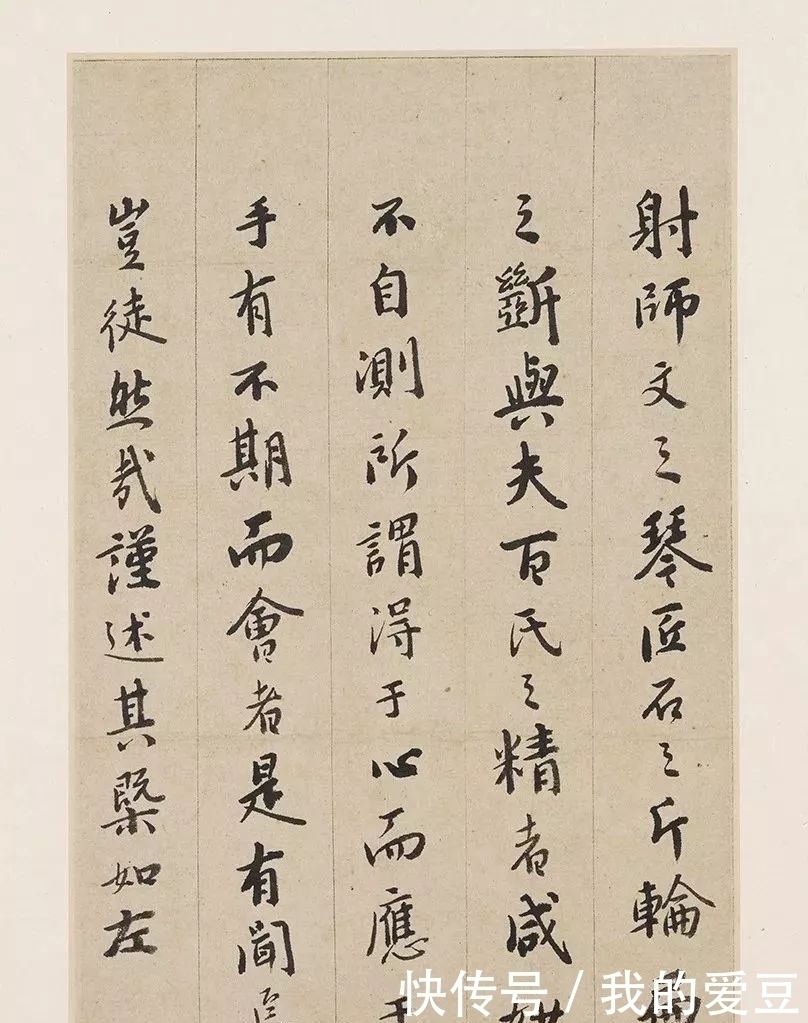 射師文之琴匠石之斤輪
之斷與夫百氏之精者咸
不自測所謂得于心而應于
手有不期而會者是有聞
豈徒然哉謹述其槩如左
快传号/我的爱豆